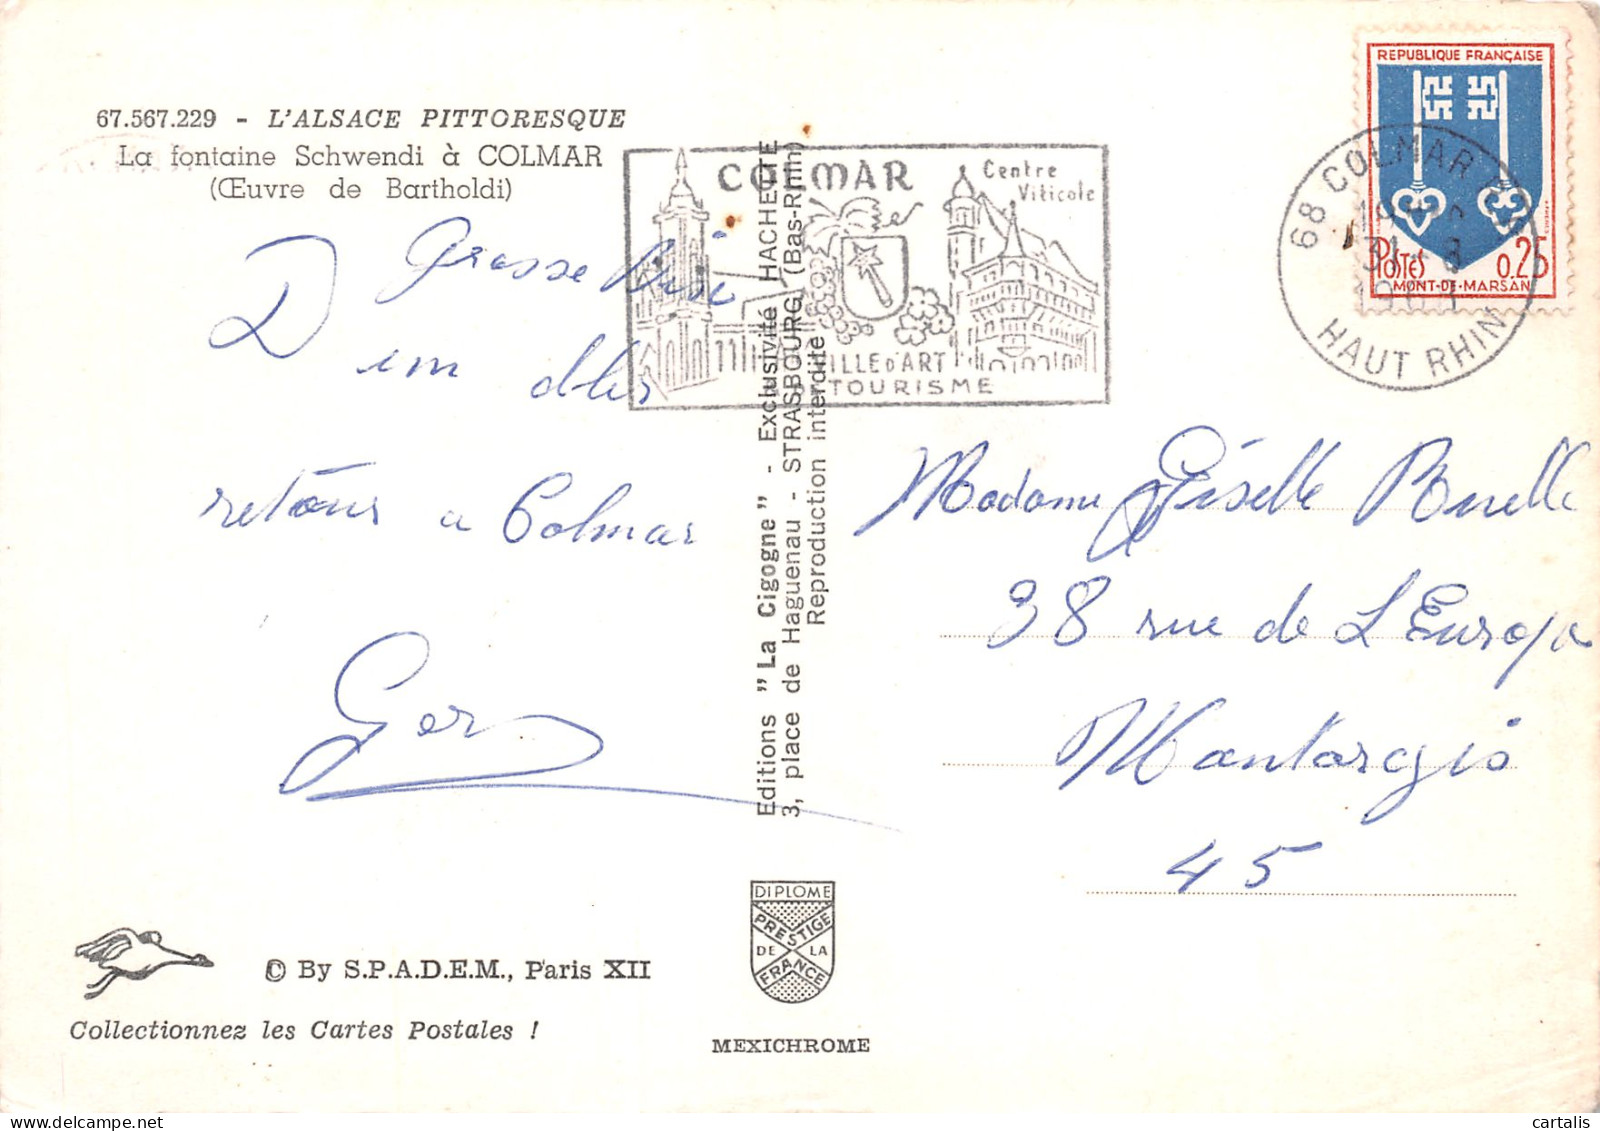 67.567.229 - L'ALSACE PITTORESQUE
La fontaine Schwendi à COLMAR
(Œuvre de Bartholdi)
Grosse Bise
D'un
retour a Colmar
COLMAR
Centre
Viticole
VILLE D'ART
TOURISME
REPUBLIQUE FRANÇAISE
POSTES 0.25
MONT-DE-MARSAN
68 COLMAR
31-8
HAUT RHIN
Editions "La Cigogne" - Exclusivité HACHETTE
3, place de Haguenau - STRASBOURG (Bas-Rhin)
Reproduction interdite
Madame Giselle
38 rue de L'Europe
Montargis
45
DIPLOME
PRESTIGE
DE LA
FRANCE
© By S.P.A.D.E.M., Paris XII
Collectionnez les Cartes Postales !
MEXICHROME
cartalis